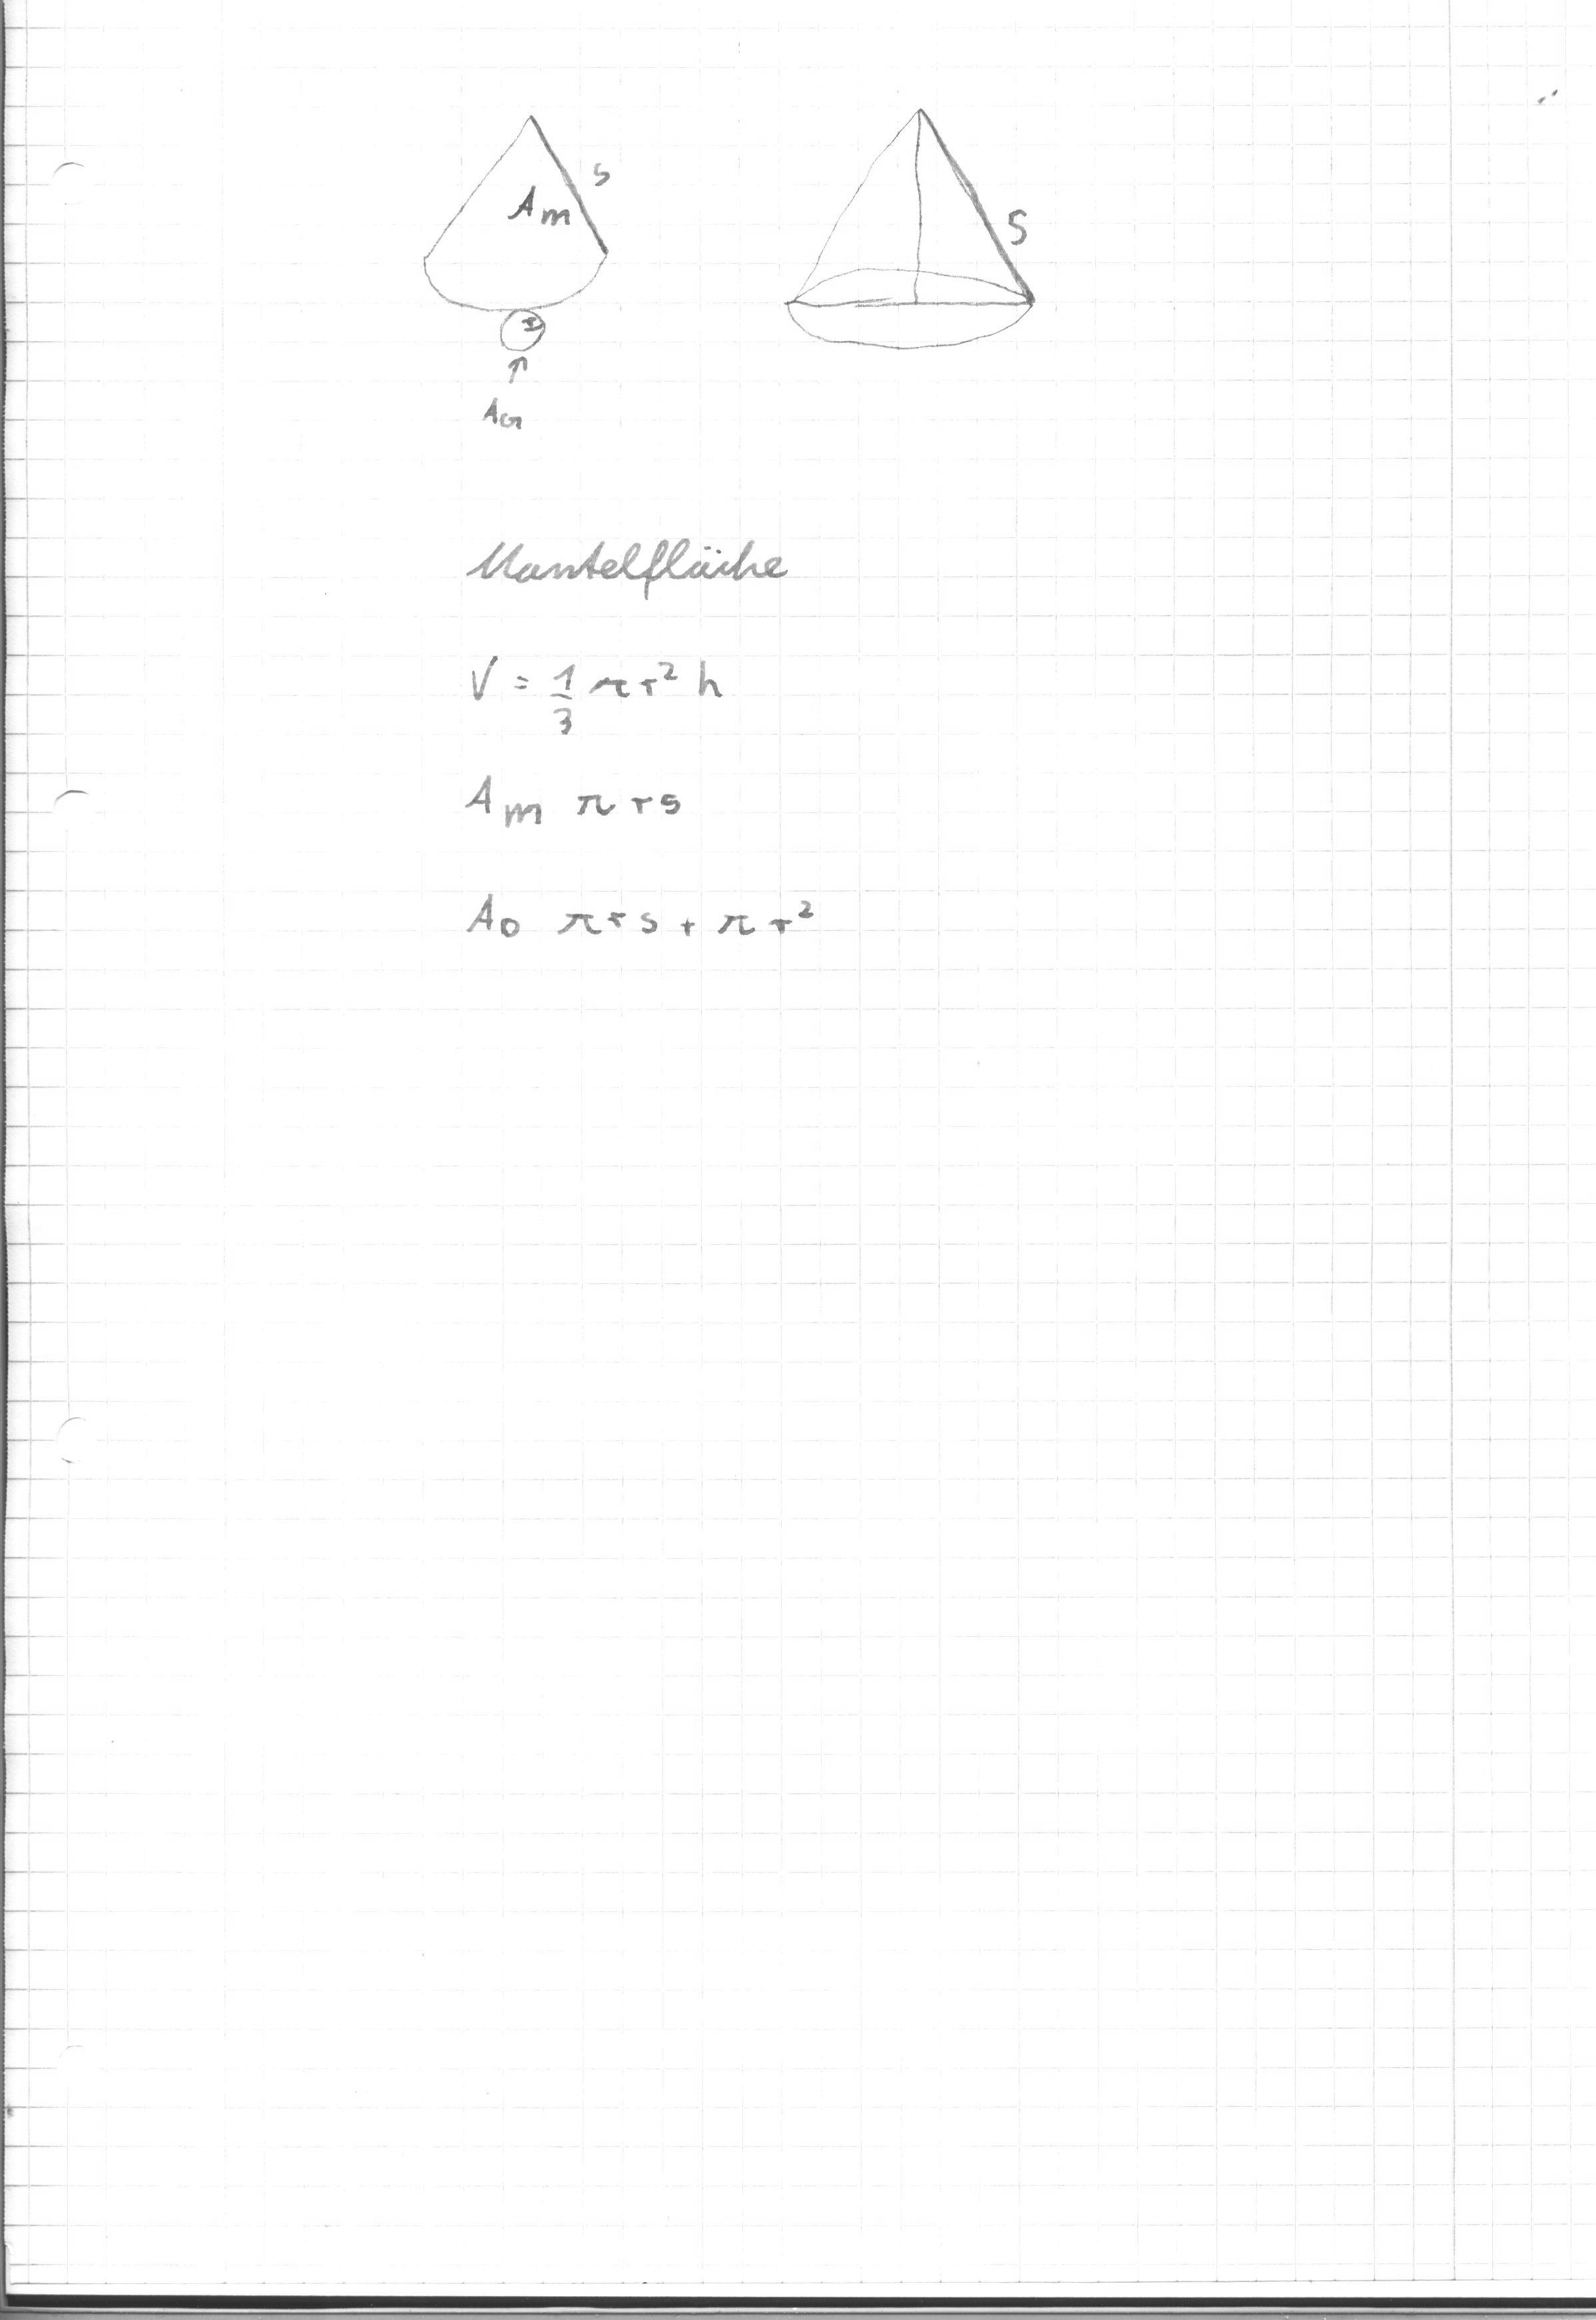 s
Am
S
r
↑
AG
Mantelfläche
V = 1/3 π r² h
Am π r s
Ao π r s + π r²